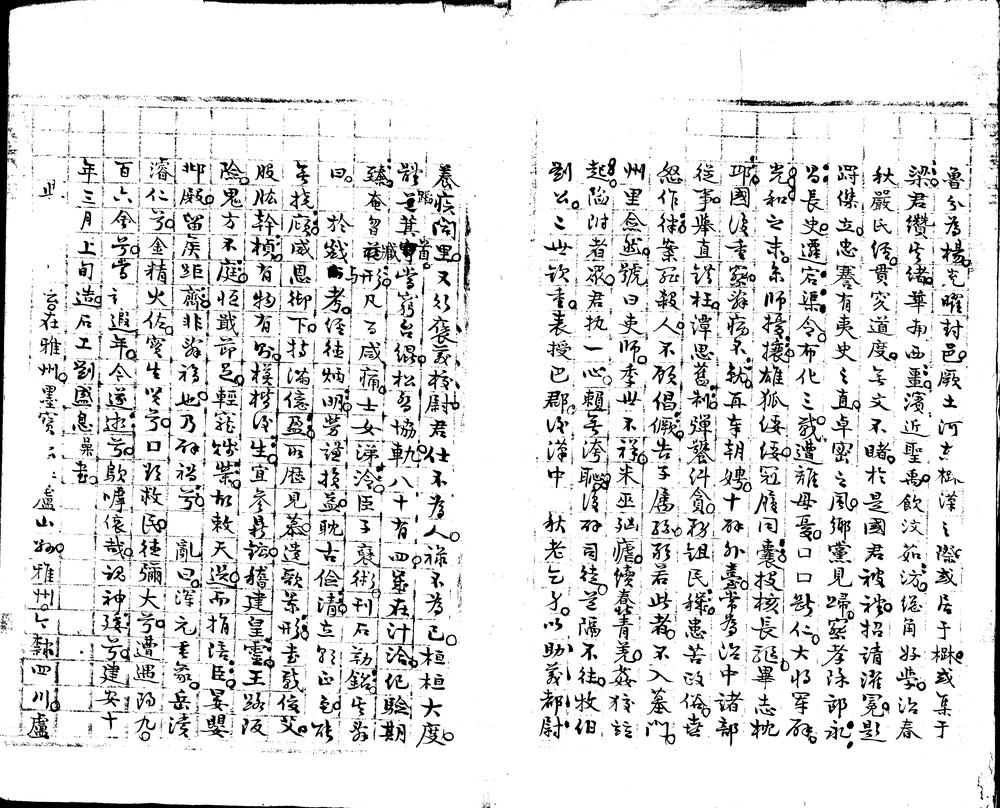 魯分為楊充曜封邑厥土河東楚漢之際或居于楚或集于
梁君纘其緒華南西畺濱近聖禹飲汶茹汸總角好學治春
秋嚴氏經貫究道度無文不睹於是國君被禮招請濯冕題
剛傑立忠謇有夷史之直卓密之風鄉黨見歸察孝除郎永
昌長史遷宕渠令布化三載遭離母憂口口斷仁大將軍辟
光和之末京師擾攘雄狐綏綏冠履同囊投核長驅畢志枕
邱國復重察辭病不就再奉朝娉十辟外臺常為治中諸部
從事舉直錯枉譚思舊制彈饕糾貪務鉏民穢患苦政俗喜
怒作律案罪殺人不顧倡獗告子屬孫敢若此者不入墓門
州里僉然號曰吏師季世不祥米巫虐續蠢青羌姦狡並
起陷附者眾君執一心賴無洿恥復辟司徒道隔不往牧伯
劉公二世欽重表授巴郡後漢中 秋老乞身以助義都尉
養疾閭里又行褒義校尉君仕不為人祿不為己桓桓大度
體蹈箕首當窮台緄松喬協軌八十有四歲在汁洽紀驗期
臻奄曶臧形凡百咸痛士女涕泠臣子褒術刊石勒銘其辭
曰 於戲與考經德炳明勞謙損益耽古儉清立朝正色能
無撓廞威恩御下持滿億盈所歷見慕遺歌景形書載俊艾
股肱幹楨有物有則模楷後生宜參鼎鉉稽建皇靈王路阪
險鬼方不庭恒戢節足輕寵賤榮故敕天選而捐陪臣晏嬰
邶殿留侯距齊非辭福也乃辟禍兮 亂曰渾元垂象岳瀆
濬仁兮金精火佐寔生賢兮口欲救民德彌大兮遭遇陽九
百六會兮當讓遐年今遂逝兮歔欷哀哉魂神移兮建安十
年三月上旬造石工劉盛息懆書
在雅州墨寶云云盧山物雅州六隸四川盧